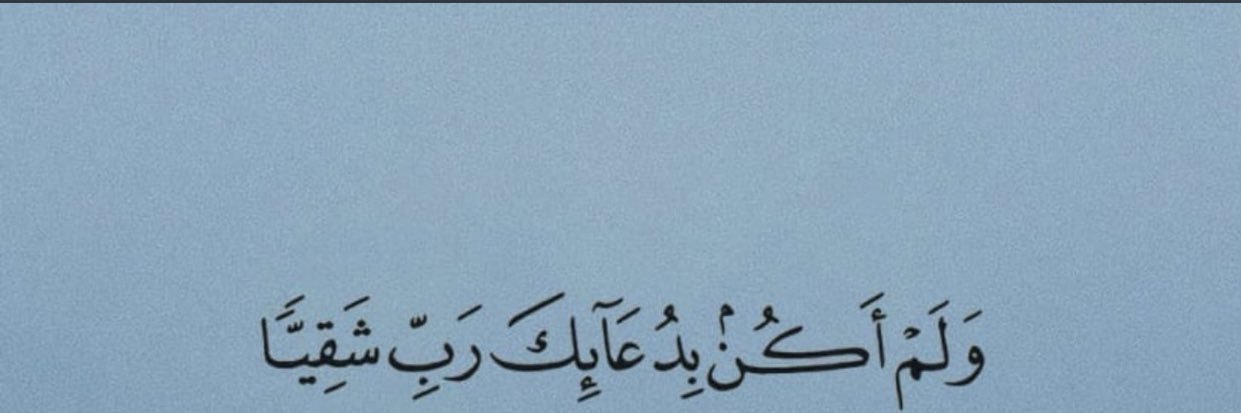 وَلَمْ أَكُنۢ بِدُعَآئِكَ رَبِّ شَقِيًّا